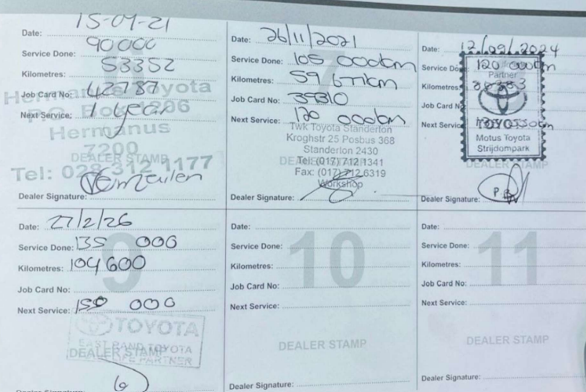 Date: 15-09-21
Service Done: 90000
Kilometres: 53352
Job Card No: 42787
Next Service: 1 year
Hermanus Toyota
Hermanus
7200
DEALER STAMP
Tel: 028 312 1177
Dealer Signature:
Date: 26/11/2021
Service Done: 105 000km
Kilometres: 59 677km
Job Card No: 39310
Next Service: 120 000km
Twk Toyota Standerton
Kroghstr 25 Posbus 368
Standerton 2430
Tel: (017) 712 1341
Fax: (017) 712 6319
Workshop
Dealer Signature:
Date: 12/09/2024
Service Do 120 000km
Partner
Kilometres:
Job Card N
Next Servic
TOYOTA
Motus Toyota
Strijdompark
DEALER STAMP
Dealer Signature:
Date: 27/2/26
Service Done: 135 000
Kilometres: 104 600
Job Card No:
Next Service: 150 000
9
TOYOTA
EAST RAND TOYOTA
DEALER STAMP
Dealer Signature:
Date:
Service Done:
Kilometres:
Job Card No:
Next Service:
10
DEALER STAMP
Dealer Signature:
Date:
Service Done:
Kilometres:
Job Card No:
Next Service:
11
DEALER STAMP
Dealer Signature: